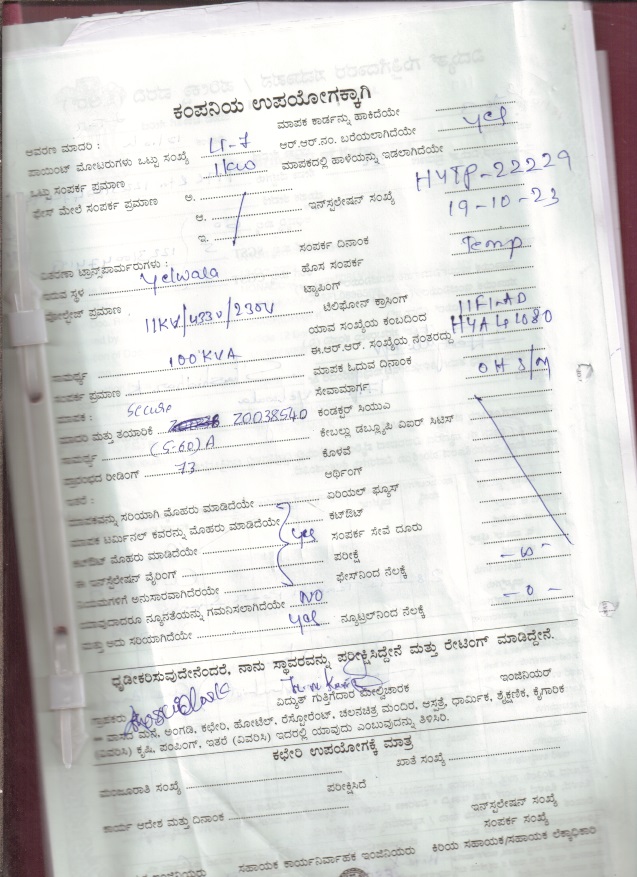 ಕಂಪನಿಯ ಉಪಯೋಗಕ್ಕಾಗಿ
ಆವರಣ ಮಾದರಿ : LT-7 ಮಾಪಕ ಕಾರ್ಡನ್ನು ಹಾಕಿದೆಯೇ
ಪಾಯಿಂಟ್ ಮೋಟರುಗಳು ಒಟ್ಟು ಸಂಖ್ಯೆ ಆರ್.ಆರ್.ನಂ. ಬರೆಯಲಾಗಿದೆಯೇ yes
ಒಟ್ಟು ಸಂಪರ್ಕ ಪ್ರಮಾಣ 11KW ಮಾಪಕದಲ್ಲಿ ಹಾಳೆಯನ್ನು ಇಡಲಾಗಿದೆಯೇ
ಫೇಸ್ ಮೇಲೆ ಸಂಪರ್ಕ ಪ್ರಮಾಣ ಅ.
ಆ. ಇನ್‌ಸ್ಟಲೇಷನ್ ಸಂಖ್ಯೆ HYTP-22229
ಇ. 19-10-23
ವಿತರಣಾ ಟ್ರಾನ್ಸ್‌ಫಾರ್ಮರುಗಳು : ಸಂಪರ್ಕ ದಿನಾಂಕ
ಇರುವ ಸ್ಥಳ Yelwala ಹೊಸ ಸಂಪರ್ಕ Temp
ವೋಲ್ಟೇಜ್ ಪ್ರಮಾಣ 11KV/433V/230V ಟ್ಯಾಪಿಂಗ್
ಟೆಲಿಫೋನ್ ಕ್ರಾಸಿಂಗ್
ಸಾಮರ್ಥ್ಯ 100KVA ಯಾವ ಸಂಖ್ಯೆಯ ಕಂಬದಿಂದ
ಸಂಪರ್ಕ ಪ್ರಮಾಣ ಈ.ಆರ್.ಆರ್. ಸಂಖ್ಯೆಯ ನಂತರದ್ದು
ಮಾಪಕ : Secure ಮಾಪಕ ಓದುವ ದಿನಾಂಕ
ಮಾದರಿ ಮತ್ತು ತಯಾರಿಕೆ 20038540 ಸೇವಾಮಾರ್ಗ
ಸಾಮರ್ಥ್ಯ (5-60)A ಕಂಡಕ್ಟರ್ ಸಿಯುವಿ
ಪ್ರಾರಂಭದ ರೀಡಿಂಗ್ 73 ಕೇಬಲ್ಲು ಡಬ್ಲ್ಯೂಪಿ ವಿಐರ್ ಸಿಟಿಸ್
ಇತರೆ : ಕೊಳವೆ
ಅರ್ಥಿಂಗ್
ಮಾಪಕವನ್ನು ಸರಿಯಾಗಿ ಮೊಹರು ಮಾಡಿದೆಯೇ ಏರಿಯಲ್ ಫ್ಯೂಸ್
ಮಾಪಕ ಟರ್ಮಿನಲ್ ಕವರನ್ನು ಮೊಹರು ಮಾಡಿದೆಯೇ ಕಟ್‌ಔಟ್
ಕಟ್‌ಔಟ್ ಮೊಹರು ಮಾಡಿದೆಯೇ yes ಸಂಪರ್ಕ ಸೇವೆ ದೂರು
ಈ ಇನ್‌ಸ್ಟಲೇಷನ್ ವೈರಿಂಗ್ ಪರೀಕ್ಷೆ
ನಿಯಮಗಳಿಗೆ ಅನುಸಾರವಾಗಿದೆರೆಯೇ ಫೇಸ್‌ನಿಂದ ನೆಲಕ್ಕೆ
ಯಾವುದಾದರೂ ನ್ಯೂನತೆಯನ್ನು ಗಮನಿಸಲಾಗಿದೆಯೇ NO
ಮತ್ತು ಅದು ಸರಿಯಾಗಿದೆಯೇ yes ನ್ಯೂಟ್ರಲ್‌ನಿಂದ ನೆಲಕ್ಕೆ - 0 -
ಧೃಡೀಕರಿಸುವುದೇನೆಂದರೆ, ನಾನು ಸ್ಥಾವರವನ್ನು ಪರೀಕ್ಷಿಸಿದ್ದೇನೆ ಮತ್ತು ರೇಟಿಂಗ್ ಮಾಡಿದ್ದೇನೆ.
ಗ್ರಾಹಕರು ವಿದ್ಯುತ್ ಗುತ್ತಿಗೆದಾರ ಮೇಲ್ವಿಚಾರಕ ಇಂಜಿನಿಯರ್
ವಾಸದ ಮನೆ, ಅಂಗಡಿ, ಕಛೇರಿ, ಹೋಟೆಲ್, ರೆಸ್ಟೋರೆಂಟ್, ಚಲನಚಿತ್ರ ಮಂದಿರ, ಆಸ್ಪತ್ರೆ, ಧಾರ್ಮಿಕ, ಶೈಕ್ಷಣಿಕ, ಕೈಗಾರಿಕ
(ವಿವರಿಸಿ) ಕೃಷಿ, ಪಂಪಿಂಗ್, ಇತರೆ (ವಿವರಿಸಿ) ಇದರಲ್ಲಿ ಯಾವುದು ಎಂಬುವುದನ್ನು ತಿಳಿಸಿರಿ.
ಕಛೇರಿ ಉಪಯೋಗಕ್ಕೆ ಮಾತ್ರ
ಮಂಜೂರಾತಿ ಸಂಖ್ಯೆ ಖಾತೆ ಸಂಖ್ಯೆ
ಪರೀಕ್ಷಿಸಿದೆ
ಕಾರ್ಯ ಆದೇಶ ಮತ್ತು ದಿನಾಂಕ ಇನ್‌ಸ್ಟಲೇಷನ್ ಸಂಖ್ಯೆ
ಸಂಪರ್ಕ ಸಂಖ್ಯೆ
ಸಹಾಯಕ ಕಾರ್ಯನಿರ್ವಾಹಕ ಇಂಜಿನಿಯರು ಕಿರಿಯ ಸಹಾಯಕ/ಸಹಾಯಕ ಲೆಕ್ಕಾಧಿಕಾರಿ